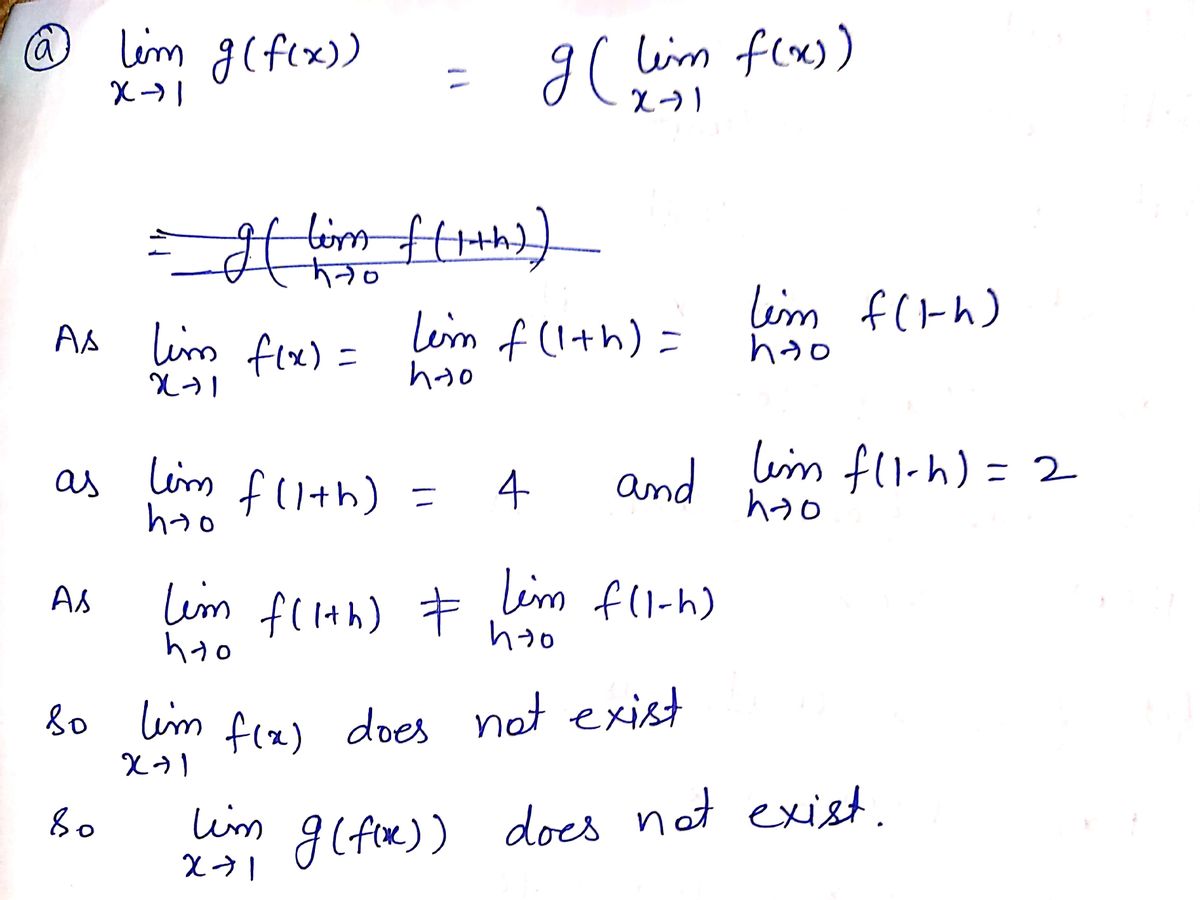 ⓐ lim x→1 g(f(x)) = g( lim x→1 f(x))
= g( lim h→0 f(1+h))
As lim x→1 f(x) = lim h→0 f(1+h) = lim h→0 f(1-h)
as lim h→0 f(1+h) = 4 and lim h→0 f(1-h) = 2
As lim h→0 f(1+h) ≠ lim h→0 f(1-h)
So lim x→1 f(x) does not exist
So lim x→1 g(f(x)) does not exist.